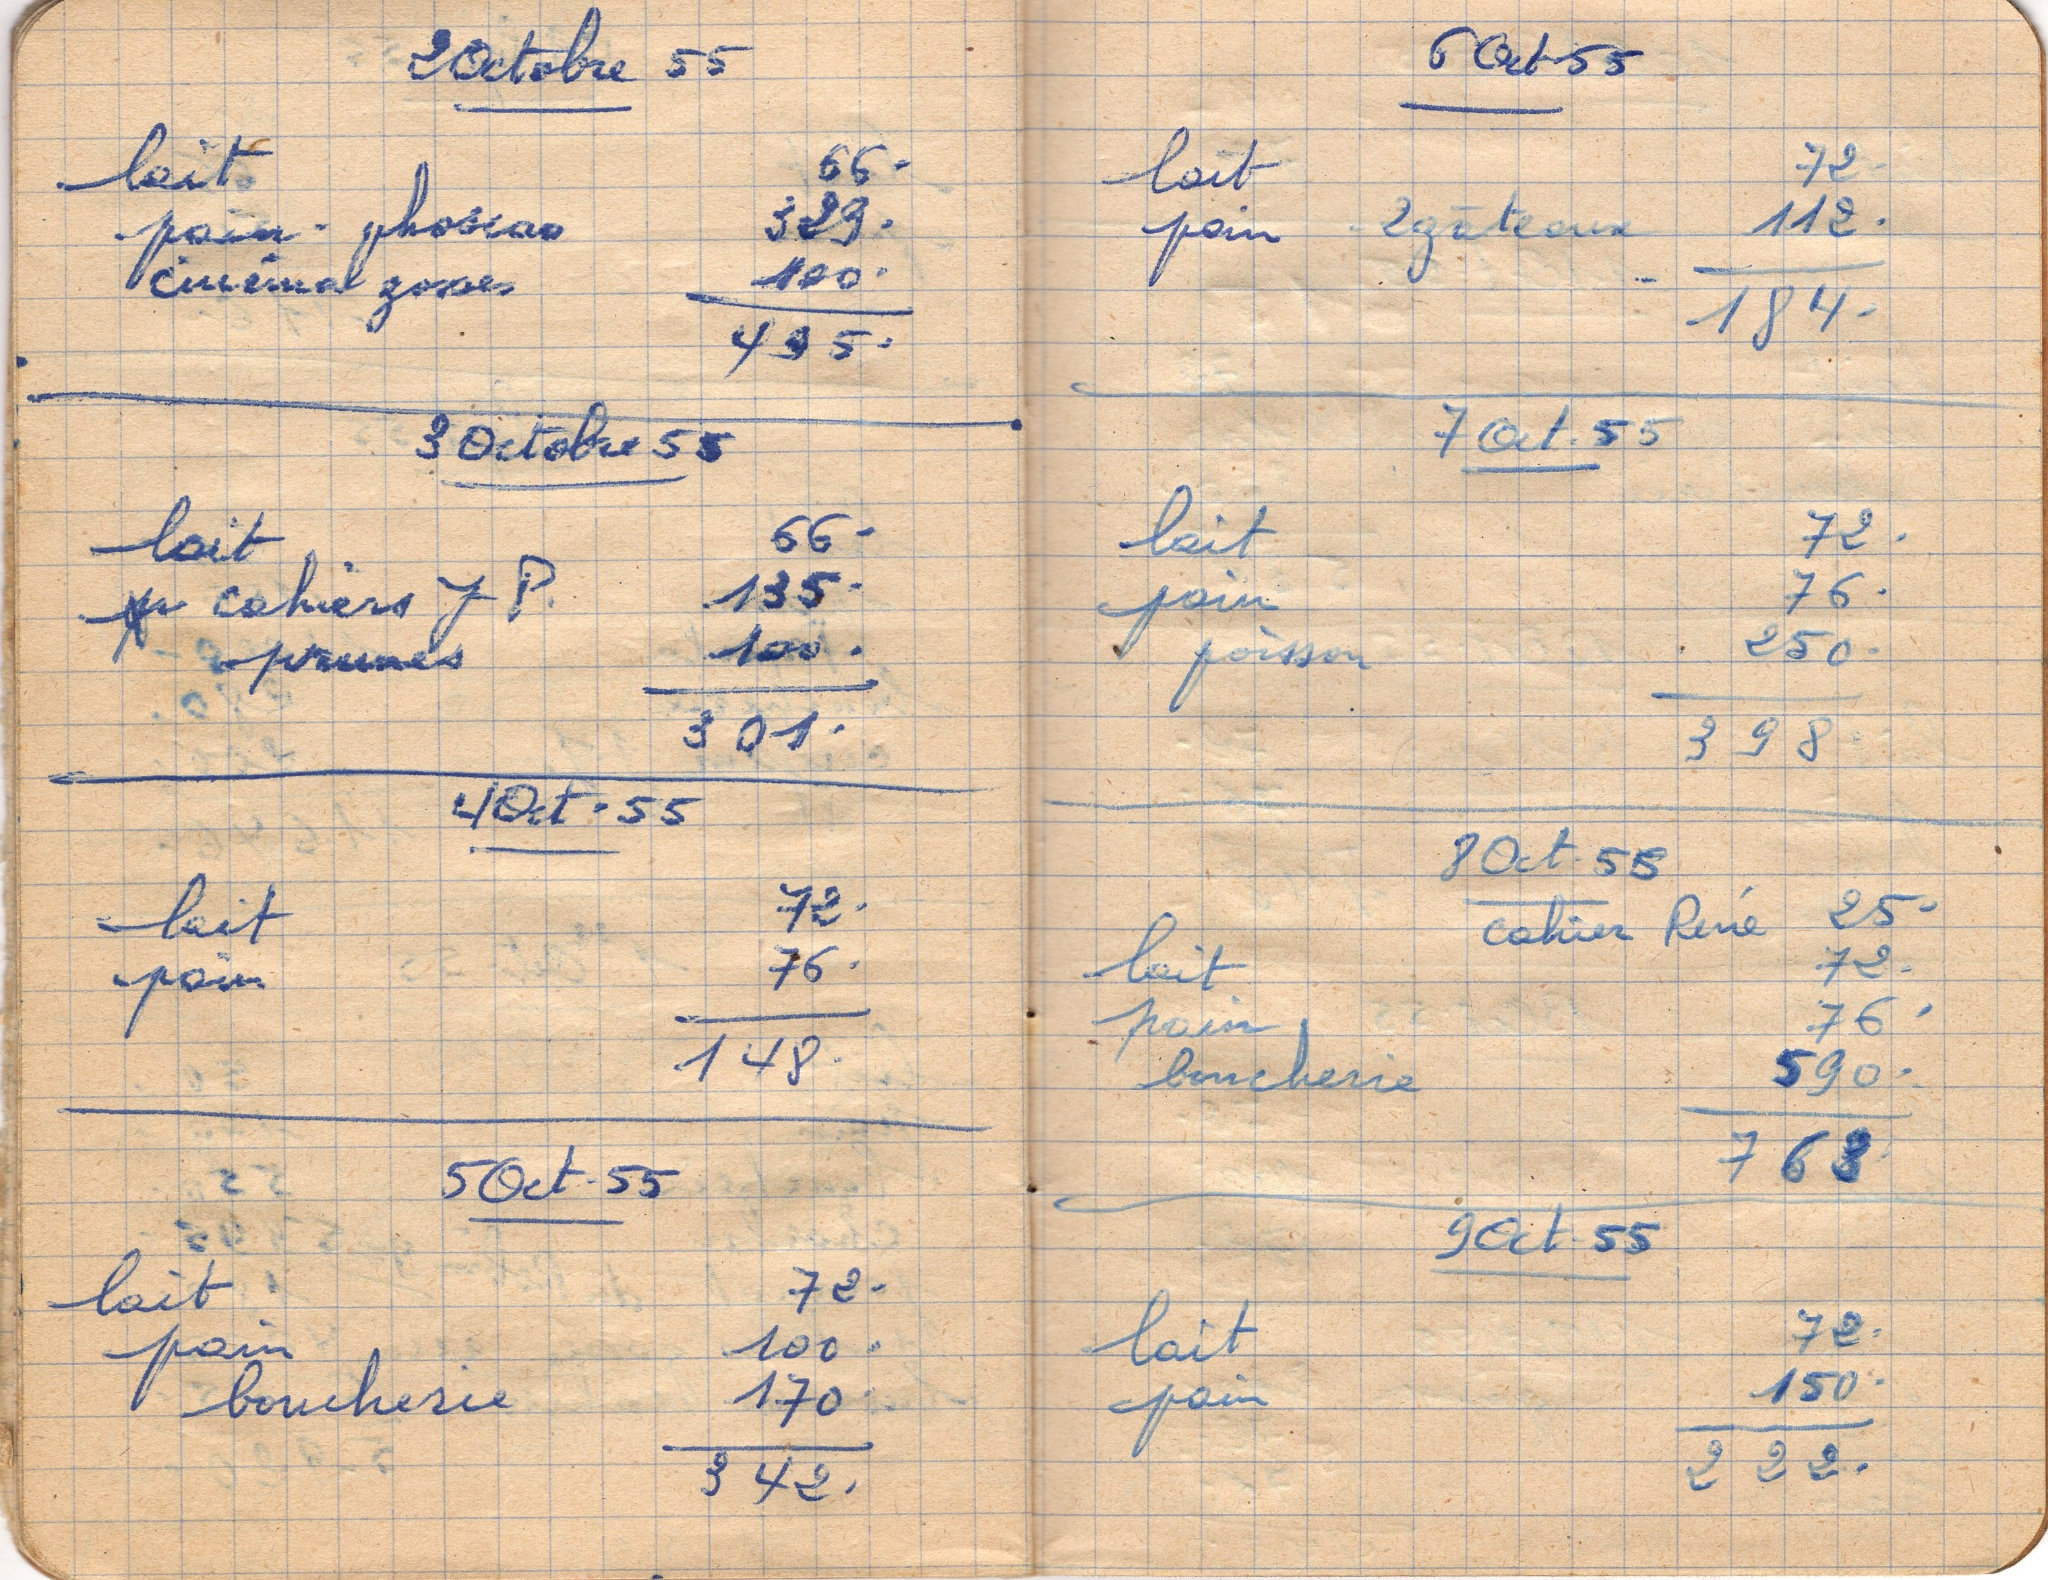 2 Octobre 55
lait 66.
pain - phoscao 329.
cinéma gosses 100.
495.
3 Octobre 55
lait 66.
cahiers J P. 135.
prunes 100.
301.
4 Oct. 55
lait 72.
pain 76.
148.
5 Oct. 55
lait 72.
pain 100.
boucherie 170
342.
6 Oct. 55
lait 72.
pain 2 gâteaux 112.
184.
7 Oct. 55
lait 72.
pain 76.
poisson 250.
398.
8 Oct. 55
cahier René 25.
lait 72.
pain 76.
boucherie 590.
763
9 Oct. 55
lait 72.
pain 150.
222.